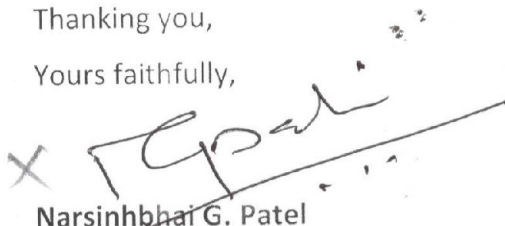 Thanking you,
Yours faithfully,
Narsinhbhai G. Patel